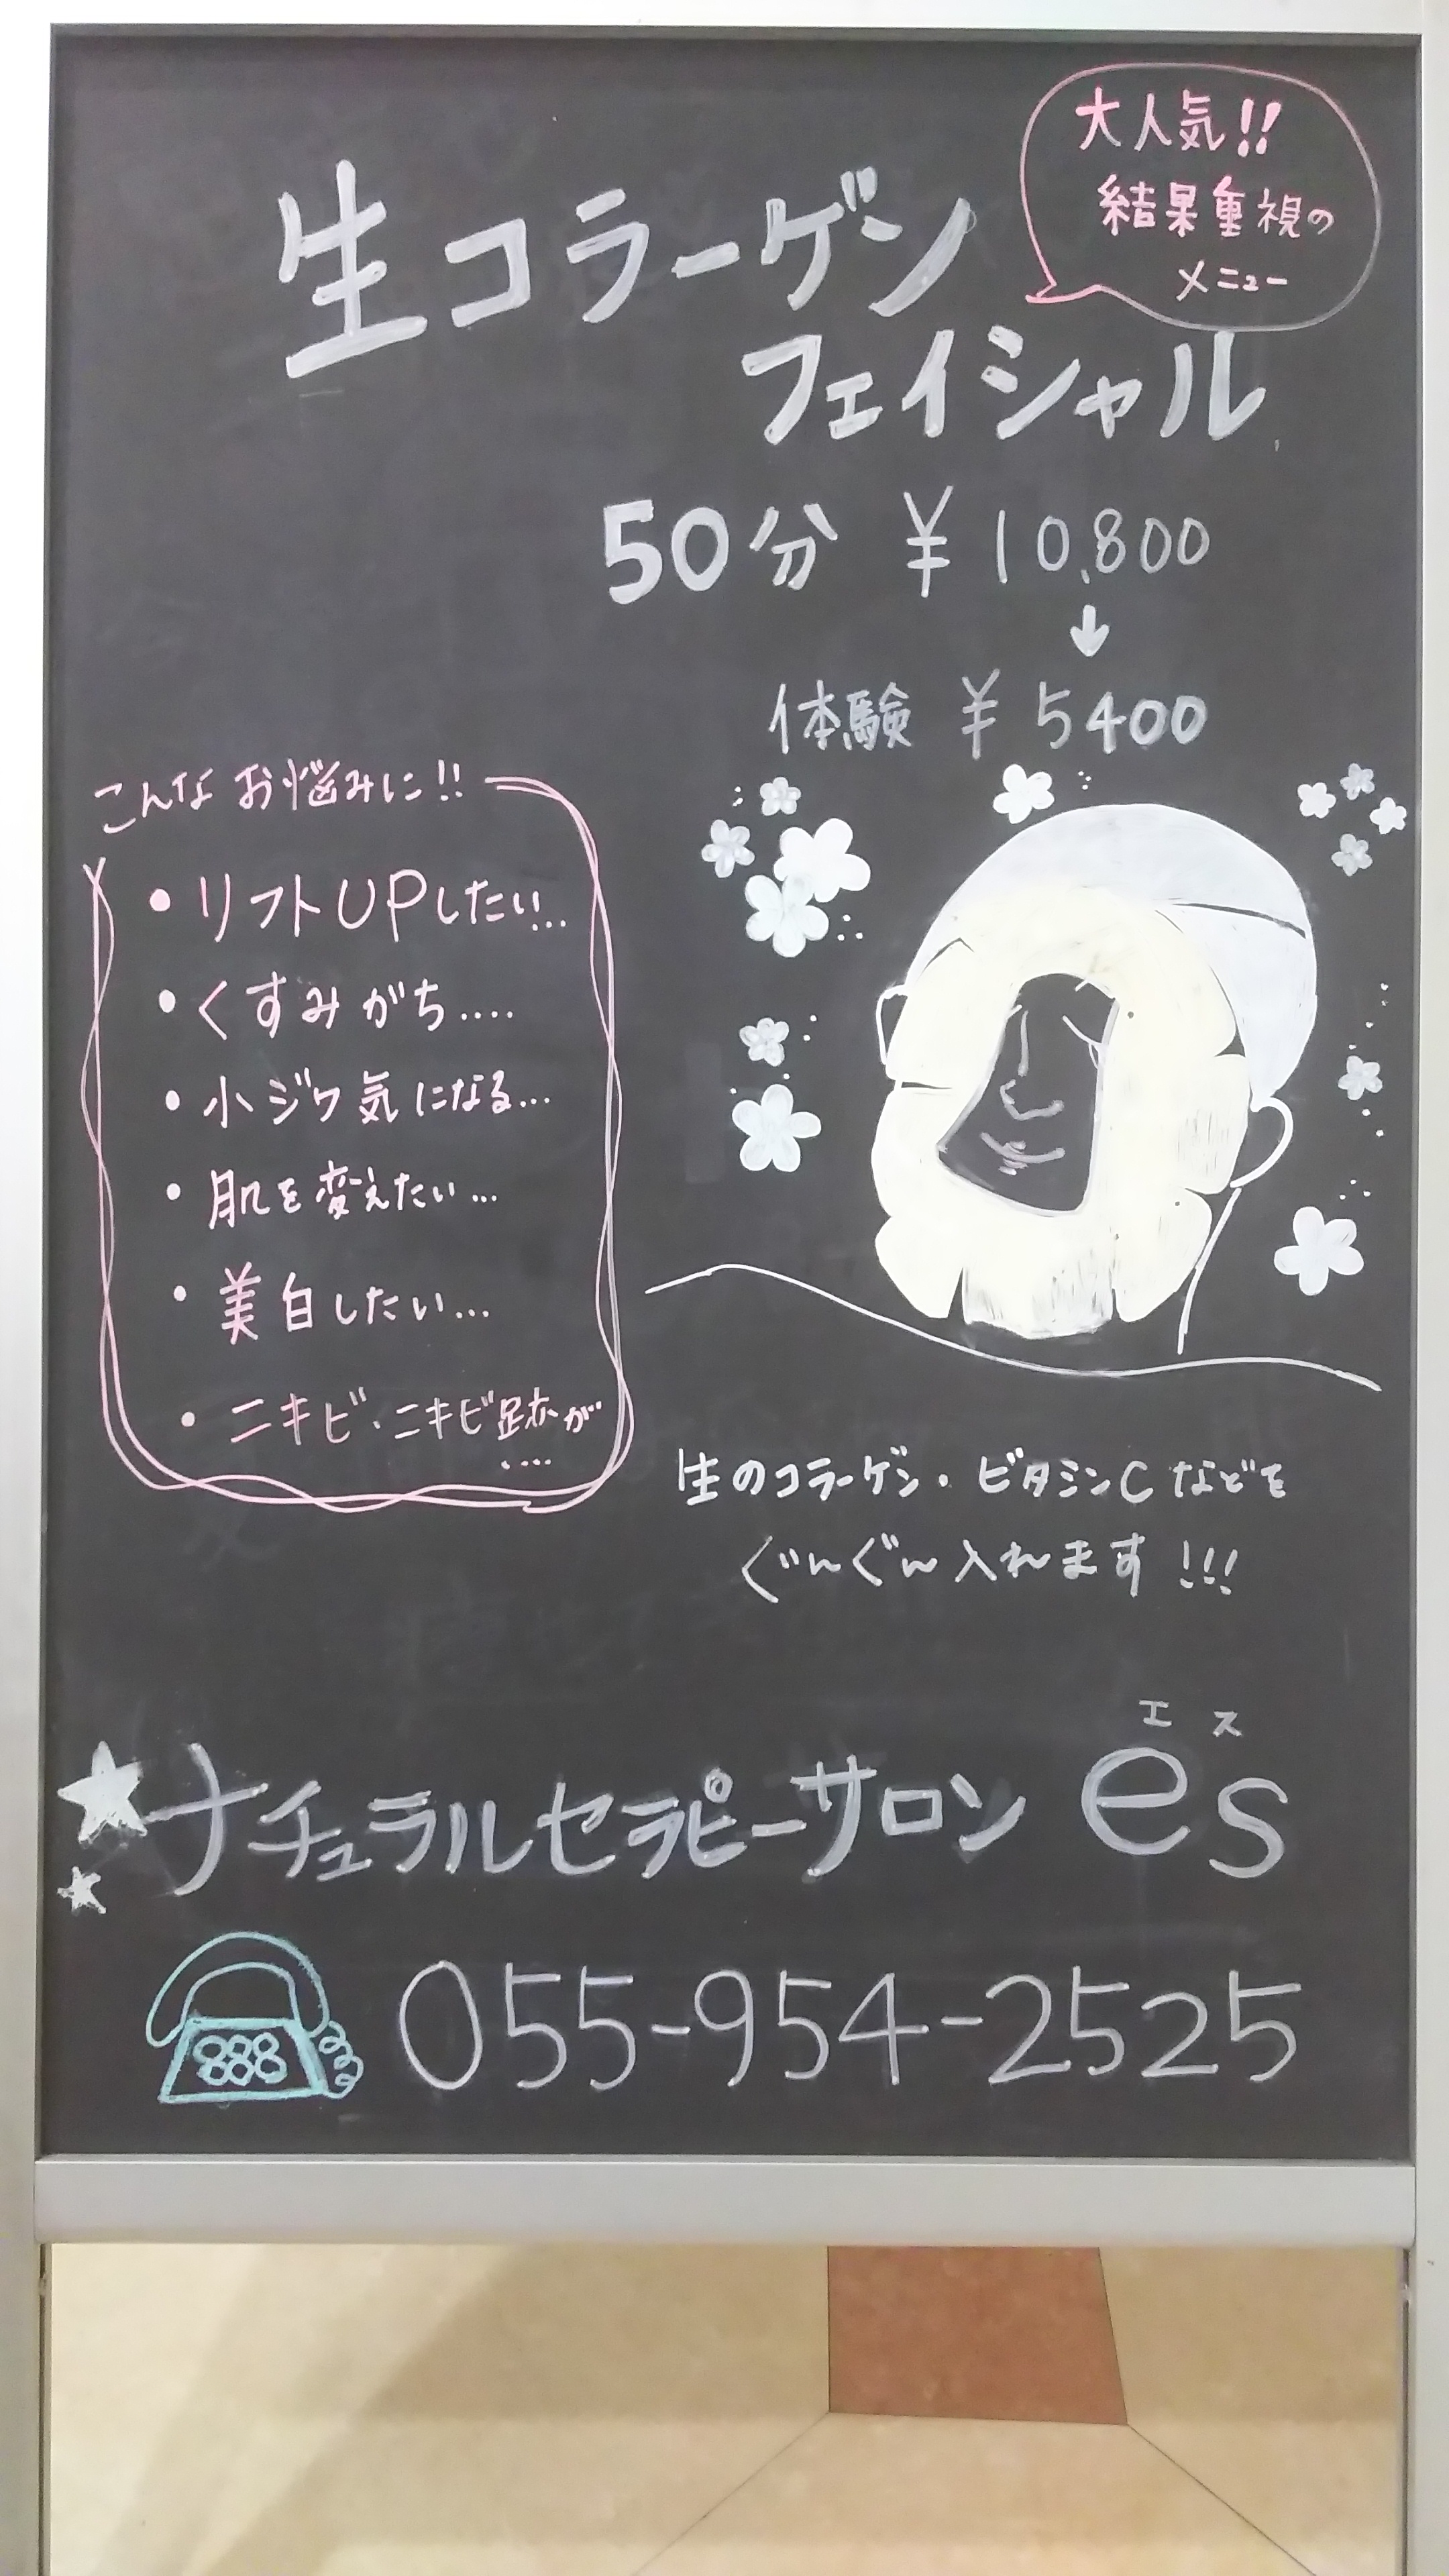 大人気!!
結果重視の
メニュー
生コラーゲン
フェイシャル
50分 ¥10,800
↓
体験 ¥5400
こんなお悩みに!!
• リフトUPしたい...
• くすみがち....
• 小ジワ気になる...
• 肌を変えたい...
• 美白したい...
• ニキビ・ニキビ跡が
....
生のコラーゲン・ビタミンCなどを
ぐんぐん入れます!!!
エス
★ナチュラルセラピーサロン es
055-954-2525